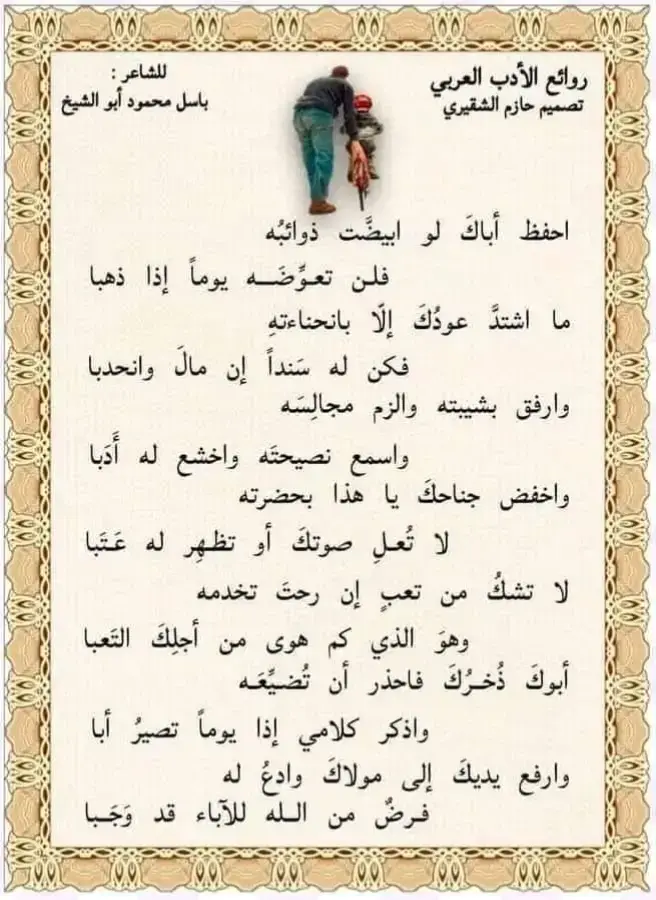 روائع الأدب العربي
تصميم حازم الشقيري
للشاعر :
باسل محمود أبو الشيخ
احفظ أباكَ لو ابيضَّت ذوائبُه
فلـن تعـوِّضَـــه يوماً إذا ذهبا
ما اشتدَّ عودُكَ إلّا بانحناءتهِ
فكن له سَنداً إن مالَ وانحدبا
وارفق بشيبته والزم مجالِسَه
واسمع نصيحتَه واخشع له أَدَبا
واخفض جناحكَ يا هذا بحضرته
لا تُعـلِ صوتكَ أو تظـهِر له عَـتَبا
لا تشكُ من تعبٍ إن رحتَ تخدمه
وهوَ الذي كم هوى من أجلِكَ التَعبا
أبوكَ ذُخـرُكَ فاحذر أن تُضـيِّعَـه
واذكر كلامي إذا يوماً تصيرُ أبا
وارفع يديكَ إلى مولاكَ وادعُ له
فـرضٌ من الـله للآباء قد وَجَـبا